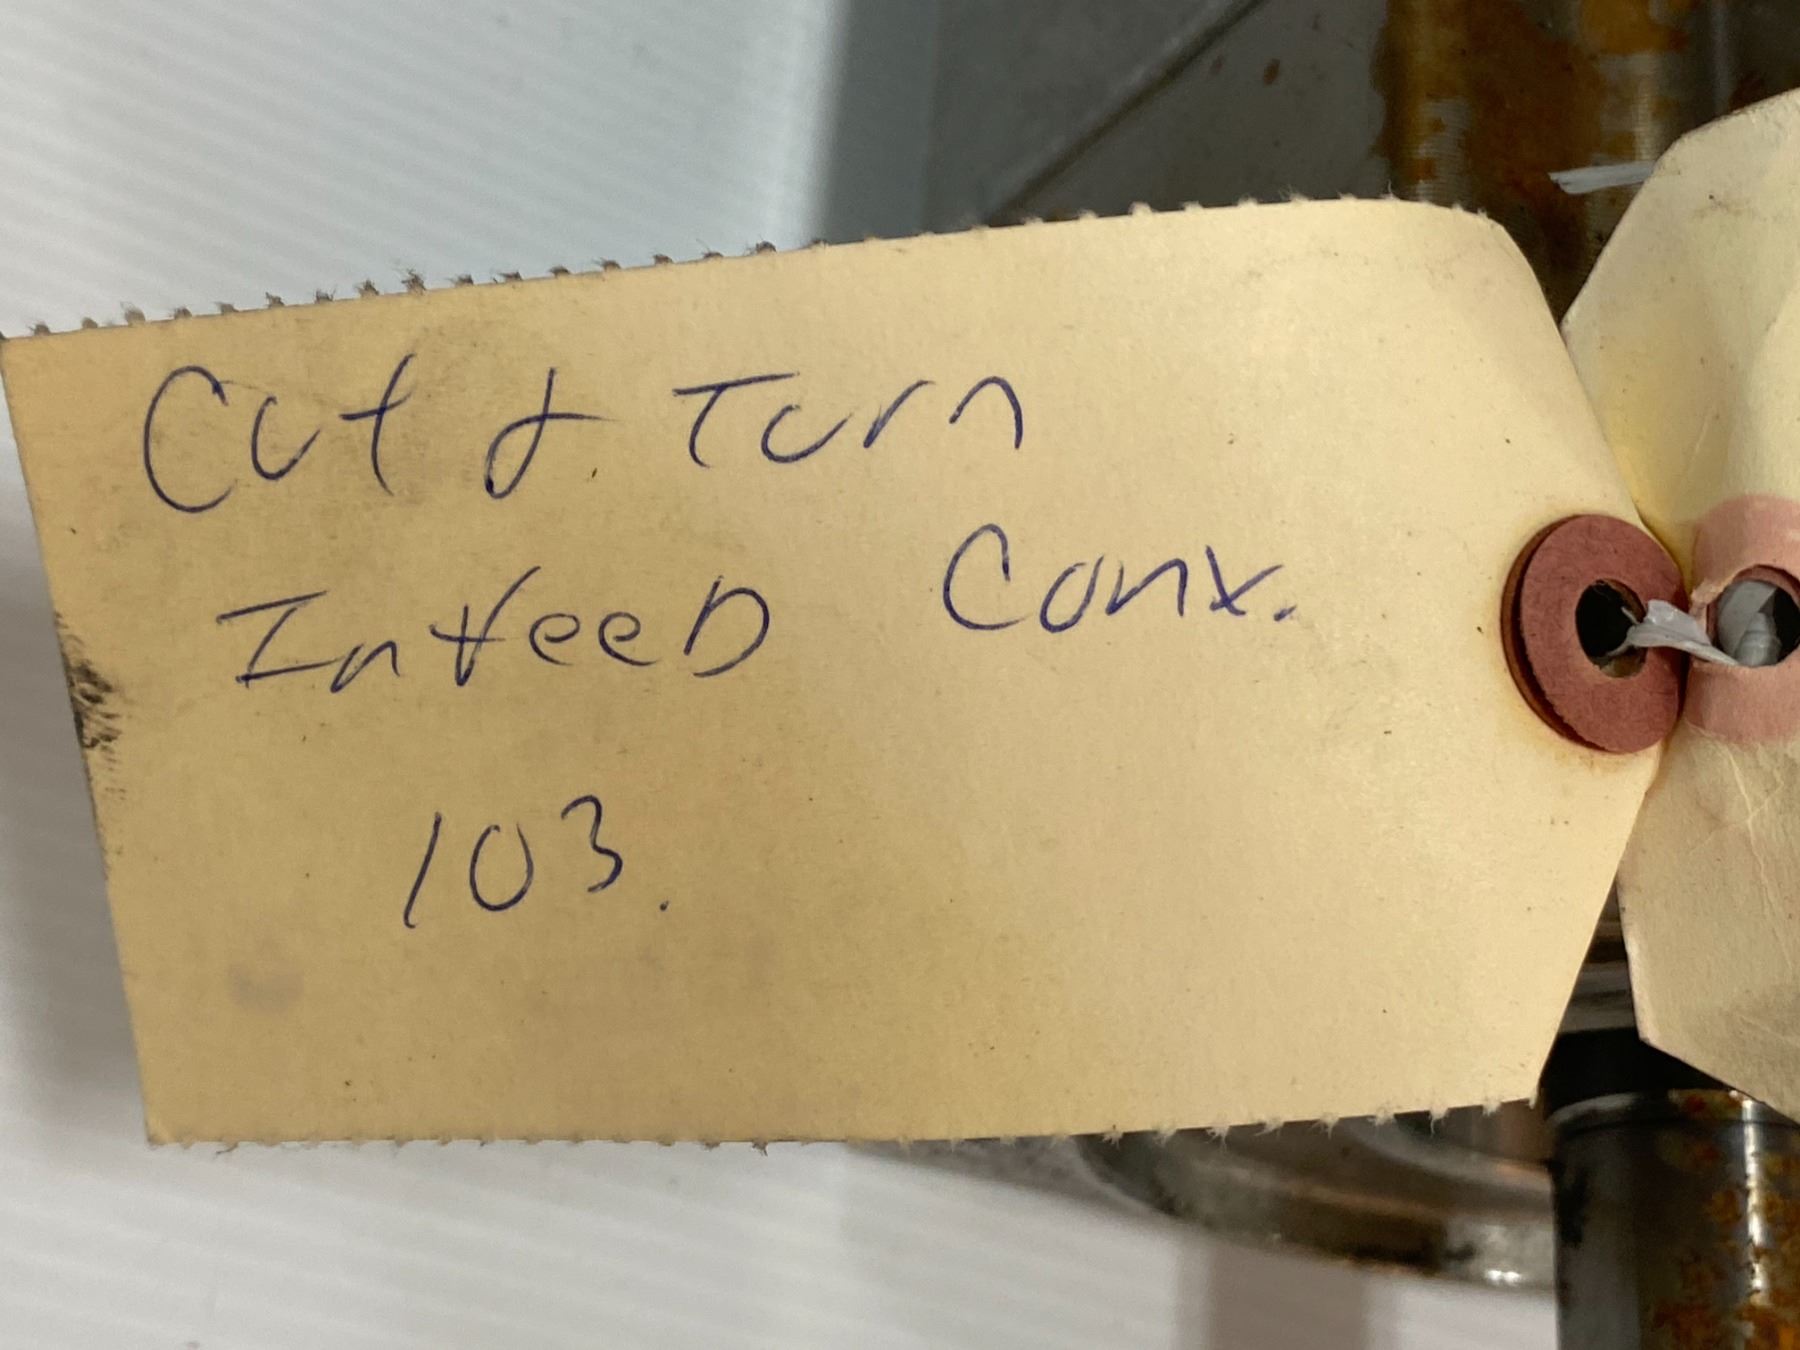 Cut & Turn
InfeeD Conv.
103.